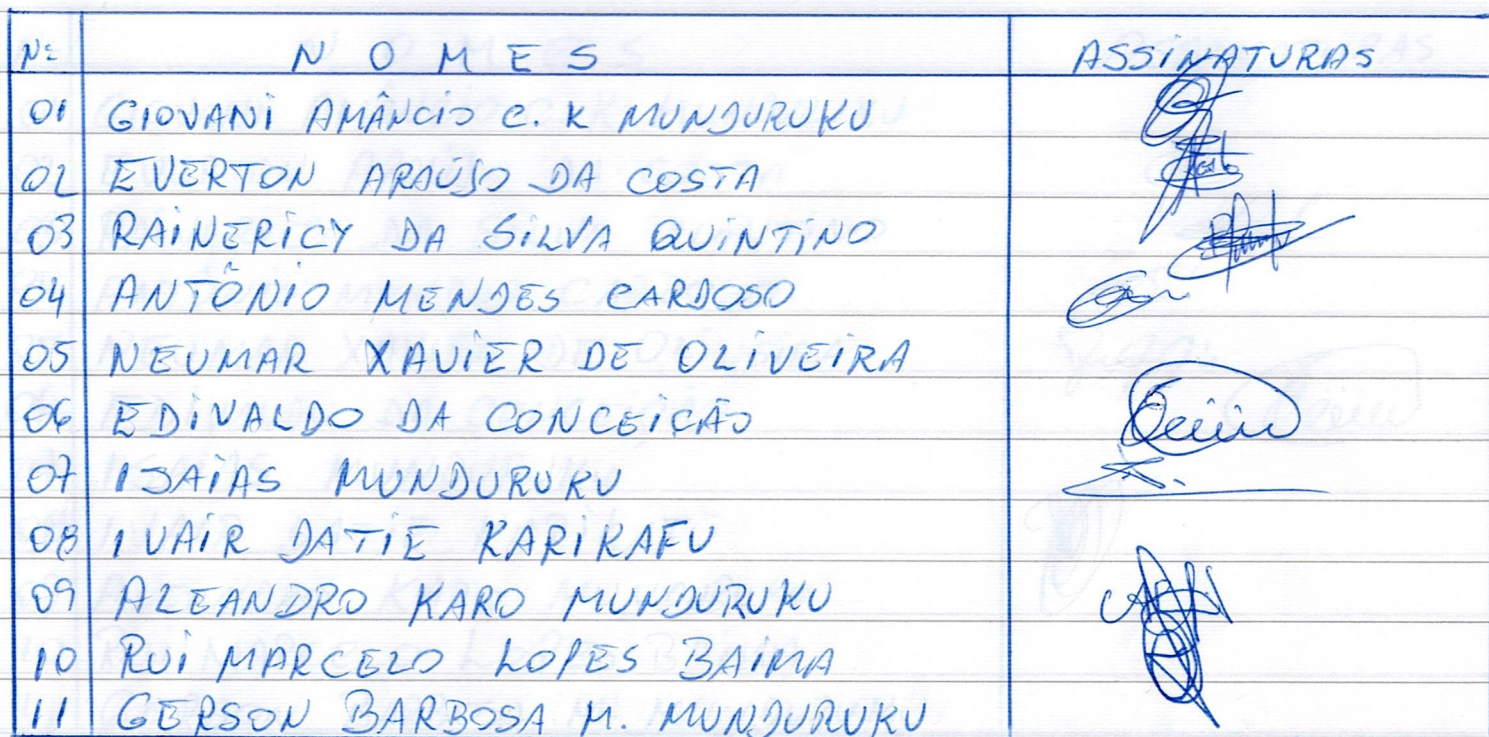 Nº NOMES ASSINATURAS
01 GIOVANI AMÂNCIO C. K MUNDURUKU
02 EVERTON ARAÚJO DA COSTA
03 RAINERICY DA SILVA QUINTINO
04 ANTÔNIO MENDES CARDOSO
05 NEUMAR XAVIER DE OLIVEIRA
06 EDIVALDO DA CONCEIÇÃO
07 ISAIAS MUNDURUKU
08 IVAIR DATIE KARIKAFU
09 ALEANDRO KARO MUNDURUKU
10 RUI MARCELO LOPES BAIMA
11 GERSON BARBOSA M. MUNDURUKU